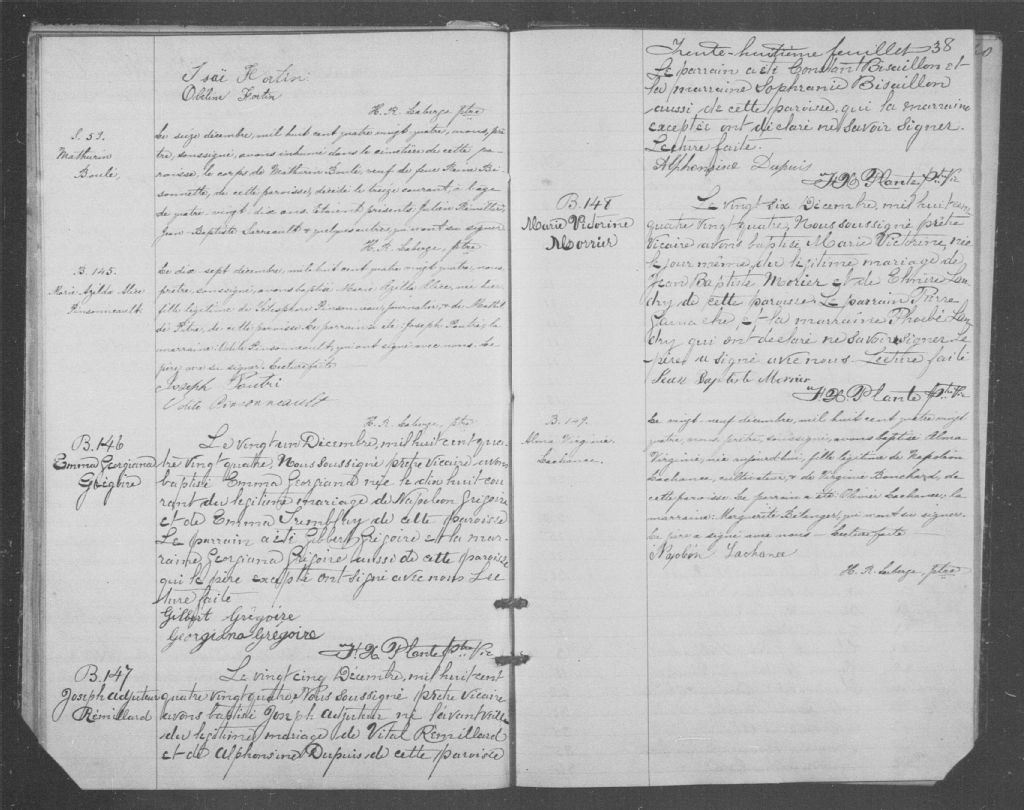 Isaï Fortin
Obéline Fortin
H. R. Laberge, ptre
S. 53.
Mathurin
Boulé.
Le seize décembre, mil huit cent quatre vingt quatre, nous, prê
tre, soussigné, avons inhumé dans le cimetière de cette pa-
roisse, le corps de Mathurin Boulé, veuf de feue
de cette paroisse, décédé le treize courant, à l'âge
de quatre vingt dix ans. Etaient présents: Julien
Jean-Baptiste & quelques autres, qui n'ont su signer.
H. R. Laberge, ptre
B. 145.
Marie Azilda Alice
Pinsonneault.
Le dix sept décembre, mil huit cent quatre vingt quatre, nous,
prêtre, soussigné, avons baptisé Marie Azilda Alice, née hier,
fille légitime de Télesphore Pinsonneau, journalier, & de
de cette paroisse. Le parrain a été: Joseph la
marraine: Odile Pinsonneault, qui ont signé avec nous. Le
père n'a su signer. Lecture faite
Joseph
Odile Pinsonneault
H. R. Laberge, ptre
B. 146
Emma Georgiana
Grégoire
Le vingt un Décembre, mil huit cent qua-
tre vingt quatre, Nous soussigné prêtre vicaire avons
baptisé Emma Georgiana née le dix huit cou
rant du légitime mariage de Napoléon Grégoire
et de Emma Tremblay de cette paroisse
Le parrain a été Gilbert Grégoire et la mar-
raine Georgiana Grégoire aussi de cette paroisse
qui le père excepté ont signé avec nous Lec
ture faite
Gilbert Grégoire
Georgiana Grégoire
F X Plante ptre Vic
B. 147
Joseph Adjuteur
Rémillard
Le vingt cinq Décembre, mil huit cent
quatre vingt quatre, Nous soussigné prêtre vicaire
avons baptisé Joseph Adjuteur né l'avant veille
du légitime mariage de Vital Rémillard
et de Alphonsine Dupuis de cette paroisse
Trente-huitième feuillet 38
Le parrain a été Constant Bisaillon et
la marraine Sophranie Bisaillon
aussi de cette paroisse qui la marraine
exceptée ont déclaré ne savoir signer.
Lecture faite.
Alphonsine Dupuis
F X Plante Ptre Vic
B. 148
Marie Victorine
Morrier
Le vingt six Décembre, mil huit cent
quatre vingt quatre, Nous soussigné prêtre
vicaire avons baptisé Marie Victorine, née
le jour même, du légitime mariage de
Jean Baptiste Morier et de Elmire Lan
dry de cette paroisse. Le parrain Pierre
et la marraine Phoebé Lan
dry qui ont déclaré ne savoir signer Le
père a signé avec nous Lecture faite
Jean Baptiste Morrier
F X Plante Ptre Vic
B. 149.
Alma Virginie
Lachance.
Le vingt-neuf décembre, mil huit cent quatre vingt
quatre, nous, prêtre, soussigné, avons baptisé Alma
Virginie, née aujourd'hui, fille légitime de Napoléon
Lachance, cultivateur, & de Virginie Bouchard, de
cette paroisse. Le parrain a été: Olivier Lachance; la
marraine: Marguerite Bélanger, qui n'ont su signer.
Le père a signé avec nous - Lecture faite -
Napoléon Lachance
H. R. Laberge, ptre